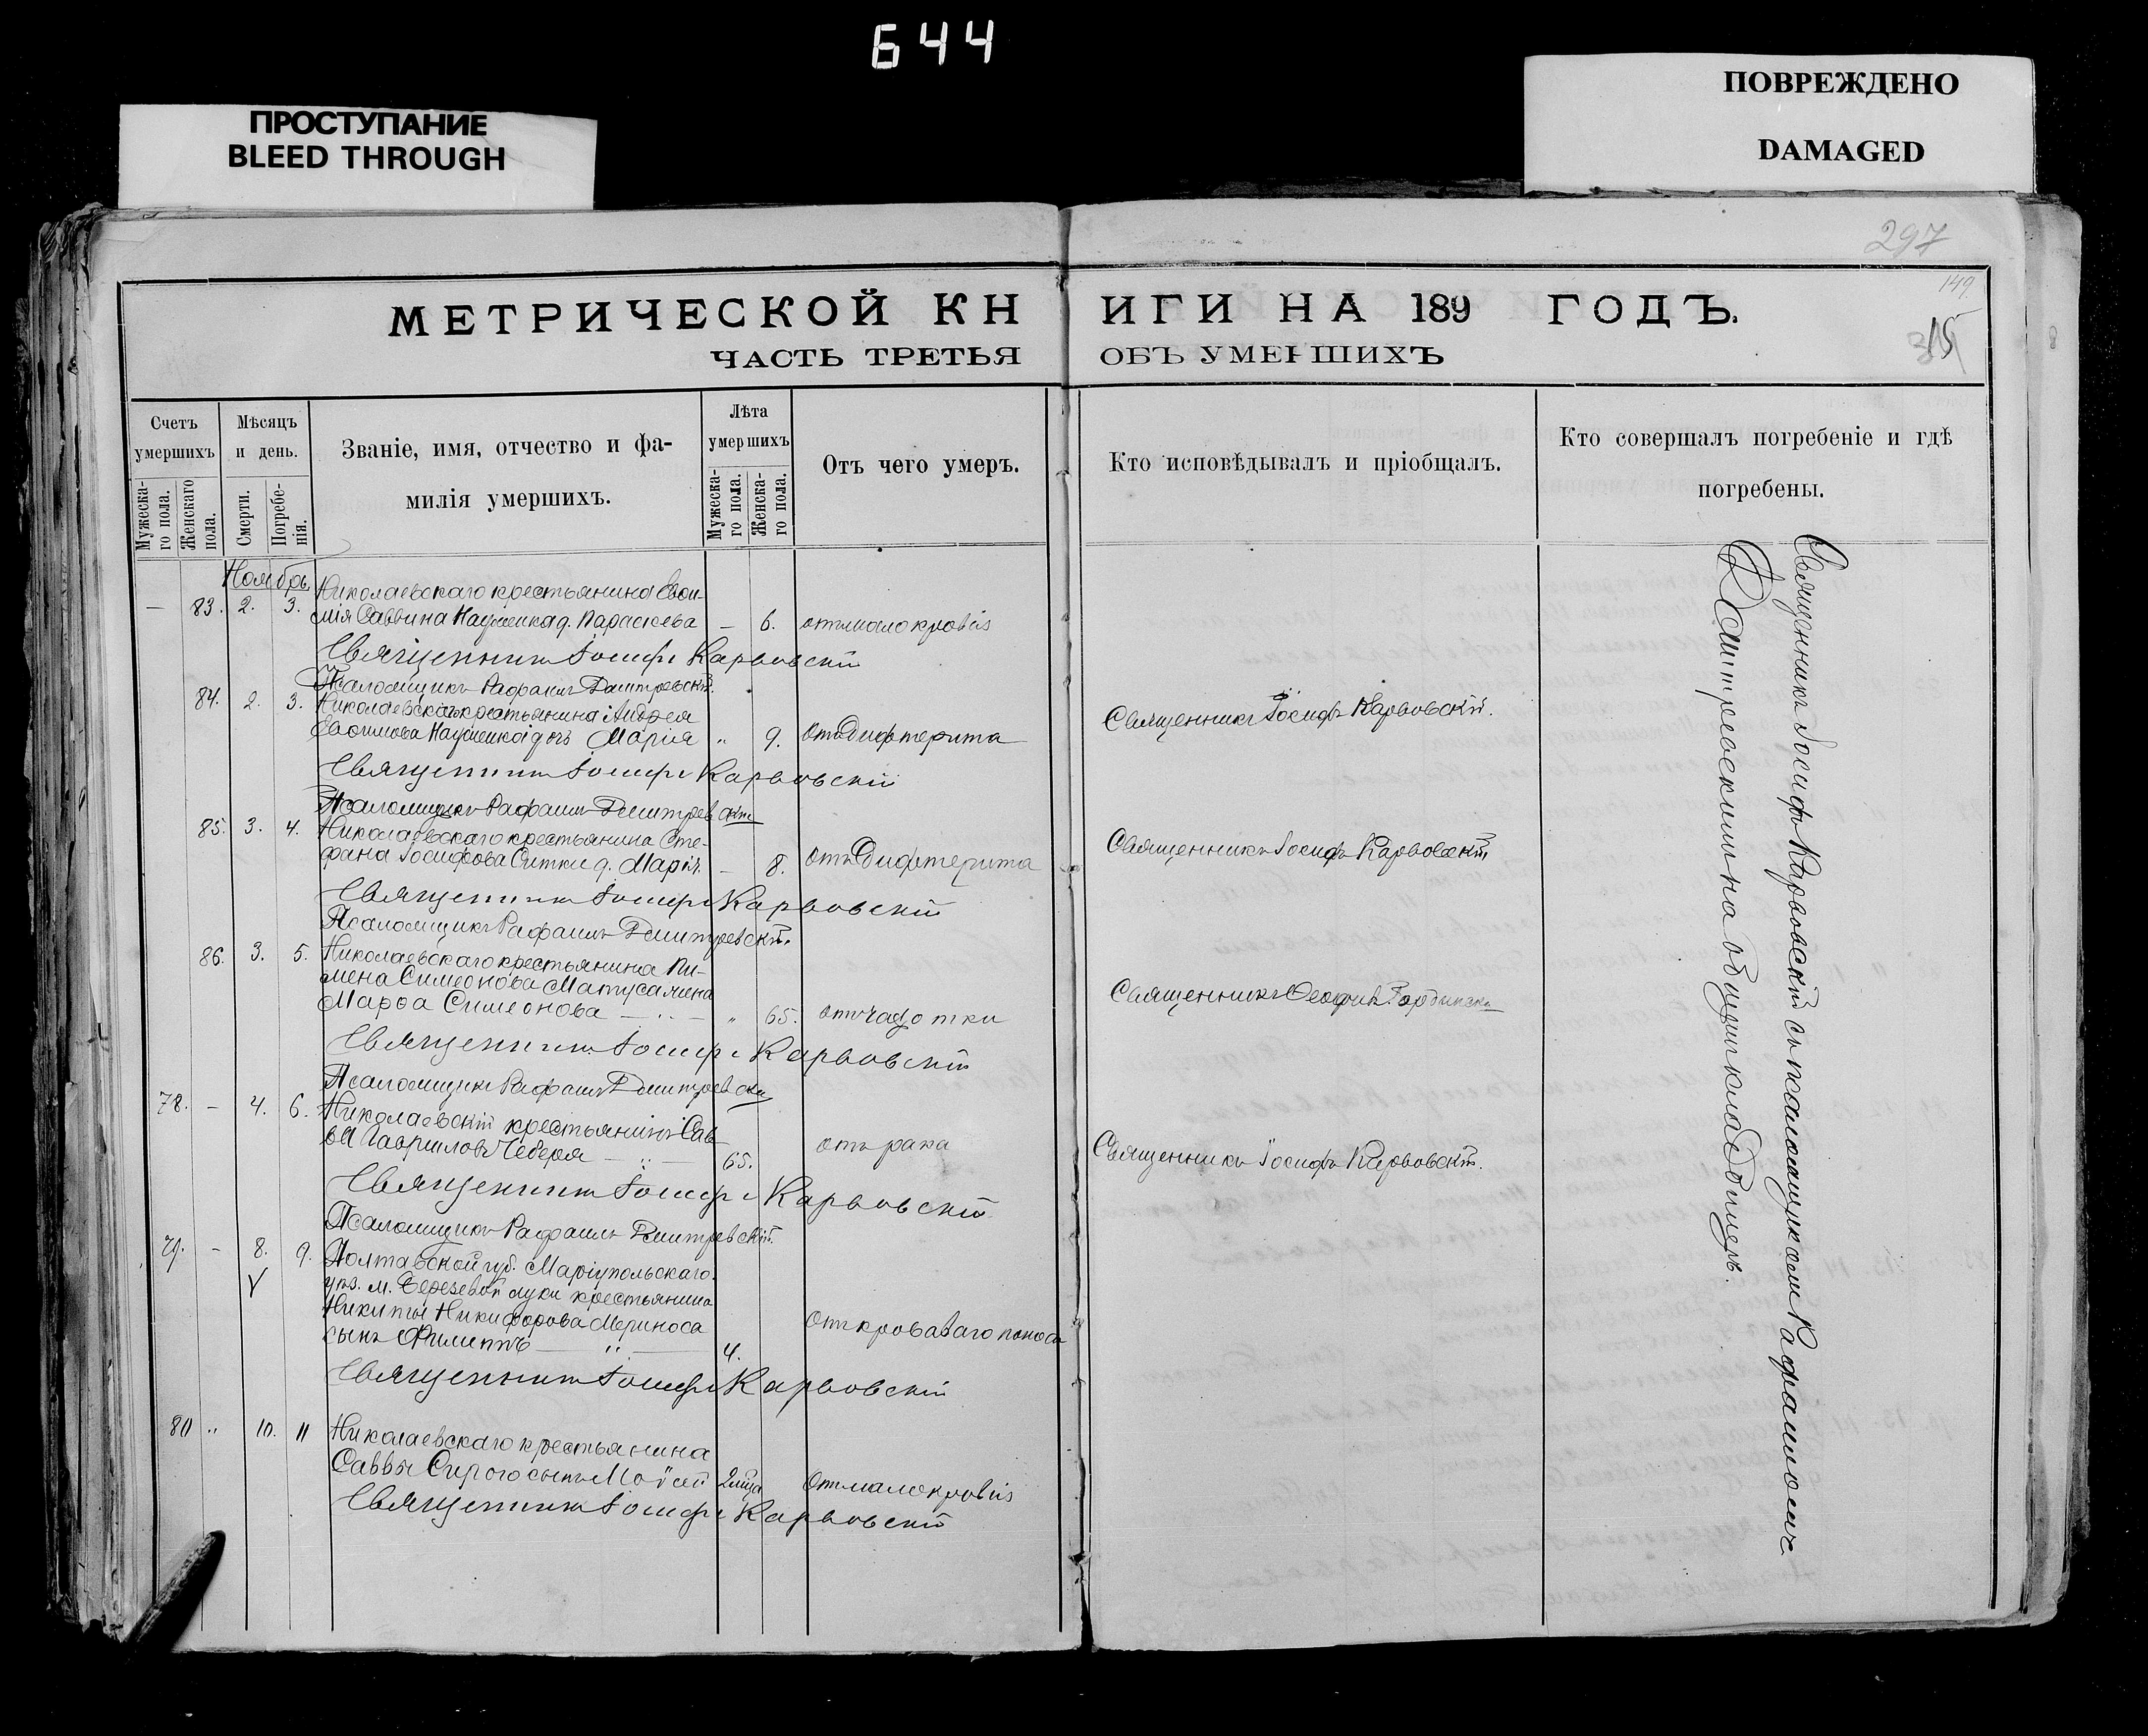 644
ПРОСТУПАНИЕ
BLEED THROUGH
ПОВРЕЖДЕНО
DAMAGED
297
149.
315
МЕТРИЧЕСКОЙ КНИГИ НА 189 ГОДЪ.
ЧАСТЬ ТРЕТЬЯ ОБЪ УМЕРШИХЪ
Счетъ умершихъ
Мужеска-го пола.
Женскаго пола.
Мѣсяцъ и день.
Смерти.
Погребе-нія.
Званіе, имя, отчество и фа-
милія умершихъ.
Лѣта умершихъ
Мужеска-го пола.
Женска-го пола.
Отъ чего умеръ.
Кто исповѣдывалъ и пріобщалъ.
Кто совершалъ погребеніе и гдѣ
погребены.
Ноябрь
Николаевскаго крестьянина Евѳи-
— 83. 2. 3. мія Саввина Науменка д. Параскева — 6. отъ малокровія
Священникъ Іосифъ Карвовскій
Псаломщикъ Рафаилъ Дмитревскій.
84. 2. 3. Николаевскаго крестьянина Андрея
Евѳимова Науменко дочь Марія „ 9. отъ дифтерита
Священникъ Іосифъ Карвовскій.
Священникъ Іосифъ Карвовскій
Псаломщикъ Рафаилъ Дмитревскій
85. 3. 4. Николаевскаго крестьянина Сте-
фана Іосифова Ситки д. Марія. — 8. отъ дифтерита
Священникъ Іосифъ Карвовскій
Священникъ Іосифъ Карвовскій
Псаломщикъ Рафаилъ Дмитревскій.
86. 3. 5. Николаевскаго крестьянина Пи-
мена Симеонова Матусա жена
Марѳа Симеонова — „ — „ 65. отъ чахотки
Священникъ Ѳеофилъ
Священникъ Іосифъ Карвовскій
Псаломщикъ Рафаилъ Дмитревскій
78. — 4. 6. Николаевскій крестьянинъ Сав-
ва Гавриловъ Чеберя — „ — 65. отъ рака
Священникъ Іосифъ Карвовскій.
Священникъ Іосифъ Карвовскій
Псаломщикъ Рафаилъ Дмитревскій.
79. — 8. 9. Полтавской губ. Маріупольскаго
V уѣз. м. Березевой луки крестьянина
Никиты Никифорова Мериноса
сынъ Филиппъ — „ — 4. отъ кроваваго поноса
Священникъ Іосифъ Карвовскій
80 „ 10. 11 Николаевскаго крестьянина
Саввы Сираго сынъ Моѵсей 2 мѣца отъ малокровія
Священникъ Іосифъ Карвовскій
Священникъ Іосифъ Карвовскій съ псаломщикомъ Рафаиломъ
Дмитревскимъ на общем кладбищѣ.